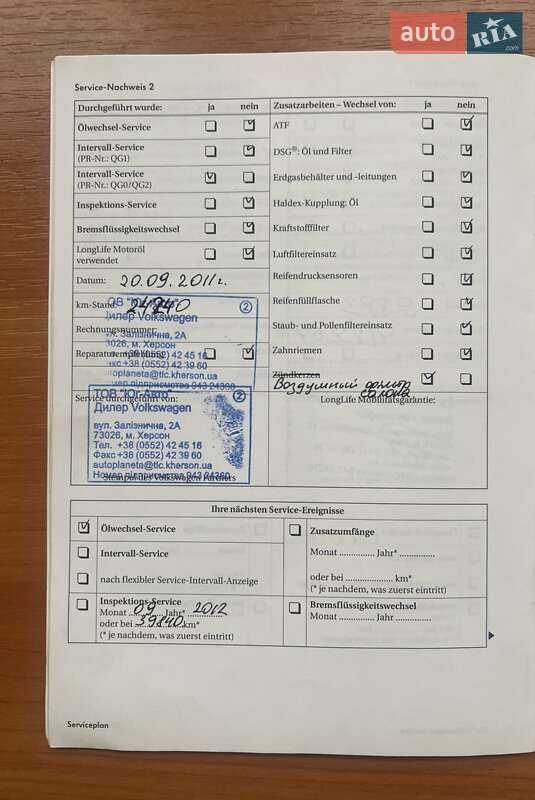 auto RIA .com
Service-Nachweis 2
Durchgeführt wurde: ja nein
Zusatzarbeiten – Wechsel von: ja nein
Ölwechsel-Service
ATF
Intervall-Service
(PR-Nr.: QG1)
DSG®: Öl und Filter
Intervall-Service
(PR-Nr.: QG0/QG2)
Erdgasbehälter und -leitungen
Inspektions-Service
Haldex-Kupplung: Öl
Bremsflüssigkeitswechsel
Kraftstofffilter
LongLife Motoröl
verwendet
Luftfiltereinsatz
Datum: 20.09.2011г.
Reifendrucksensoren
km-Stand:
Reifenfüllflasche
Rechnungsnummer
Staub- und Pollenfiltereinsatz
Reparaturempfehlung
Zahnriemen
Zündkerzen
Воздушный фильтр
салона
Дилер Volkswagen
Залізнична, 2А
73026, м. Херсон
+38 (0552) 42 45 16
+38 (0552) 42 39 60
autoplaneta@tlc.kherson.ua
Service durchgeführt von:
LongLife Mobilitätsgarantie:
ТОВ "Юг-Авто" 2
Дилер Volkswagen
вул. Залізнична, 2А
73026, м. Херсон
Тел. +38 (0552) 42 45 16
Факс +38 (0552) 42 39 60
autoplaneta@tlc.kherson.ua
Номер підприємства 943 24360
Stempel des Volkswagen Partners
Ihre nächsten Service-Ereignisse
Ölwechsel-Service
Intervall-Service
nach flexibler Service-Intervall-Anzeige
Inspektions-Service
Monat 09 Jahr* 2012
oder bei 39240 km*
(* je nachdem, was zuerst eintritt)
Zusatzumfänge
Monat ............... Jahr* ...............
oder bei .................... km*
(* je nachdem, was zuerst eintritt)
Bremsflüssigkeitswechsel
Monat ............... Jahr ...............
Serviceplan